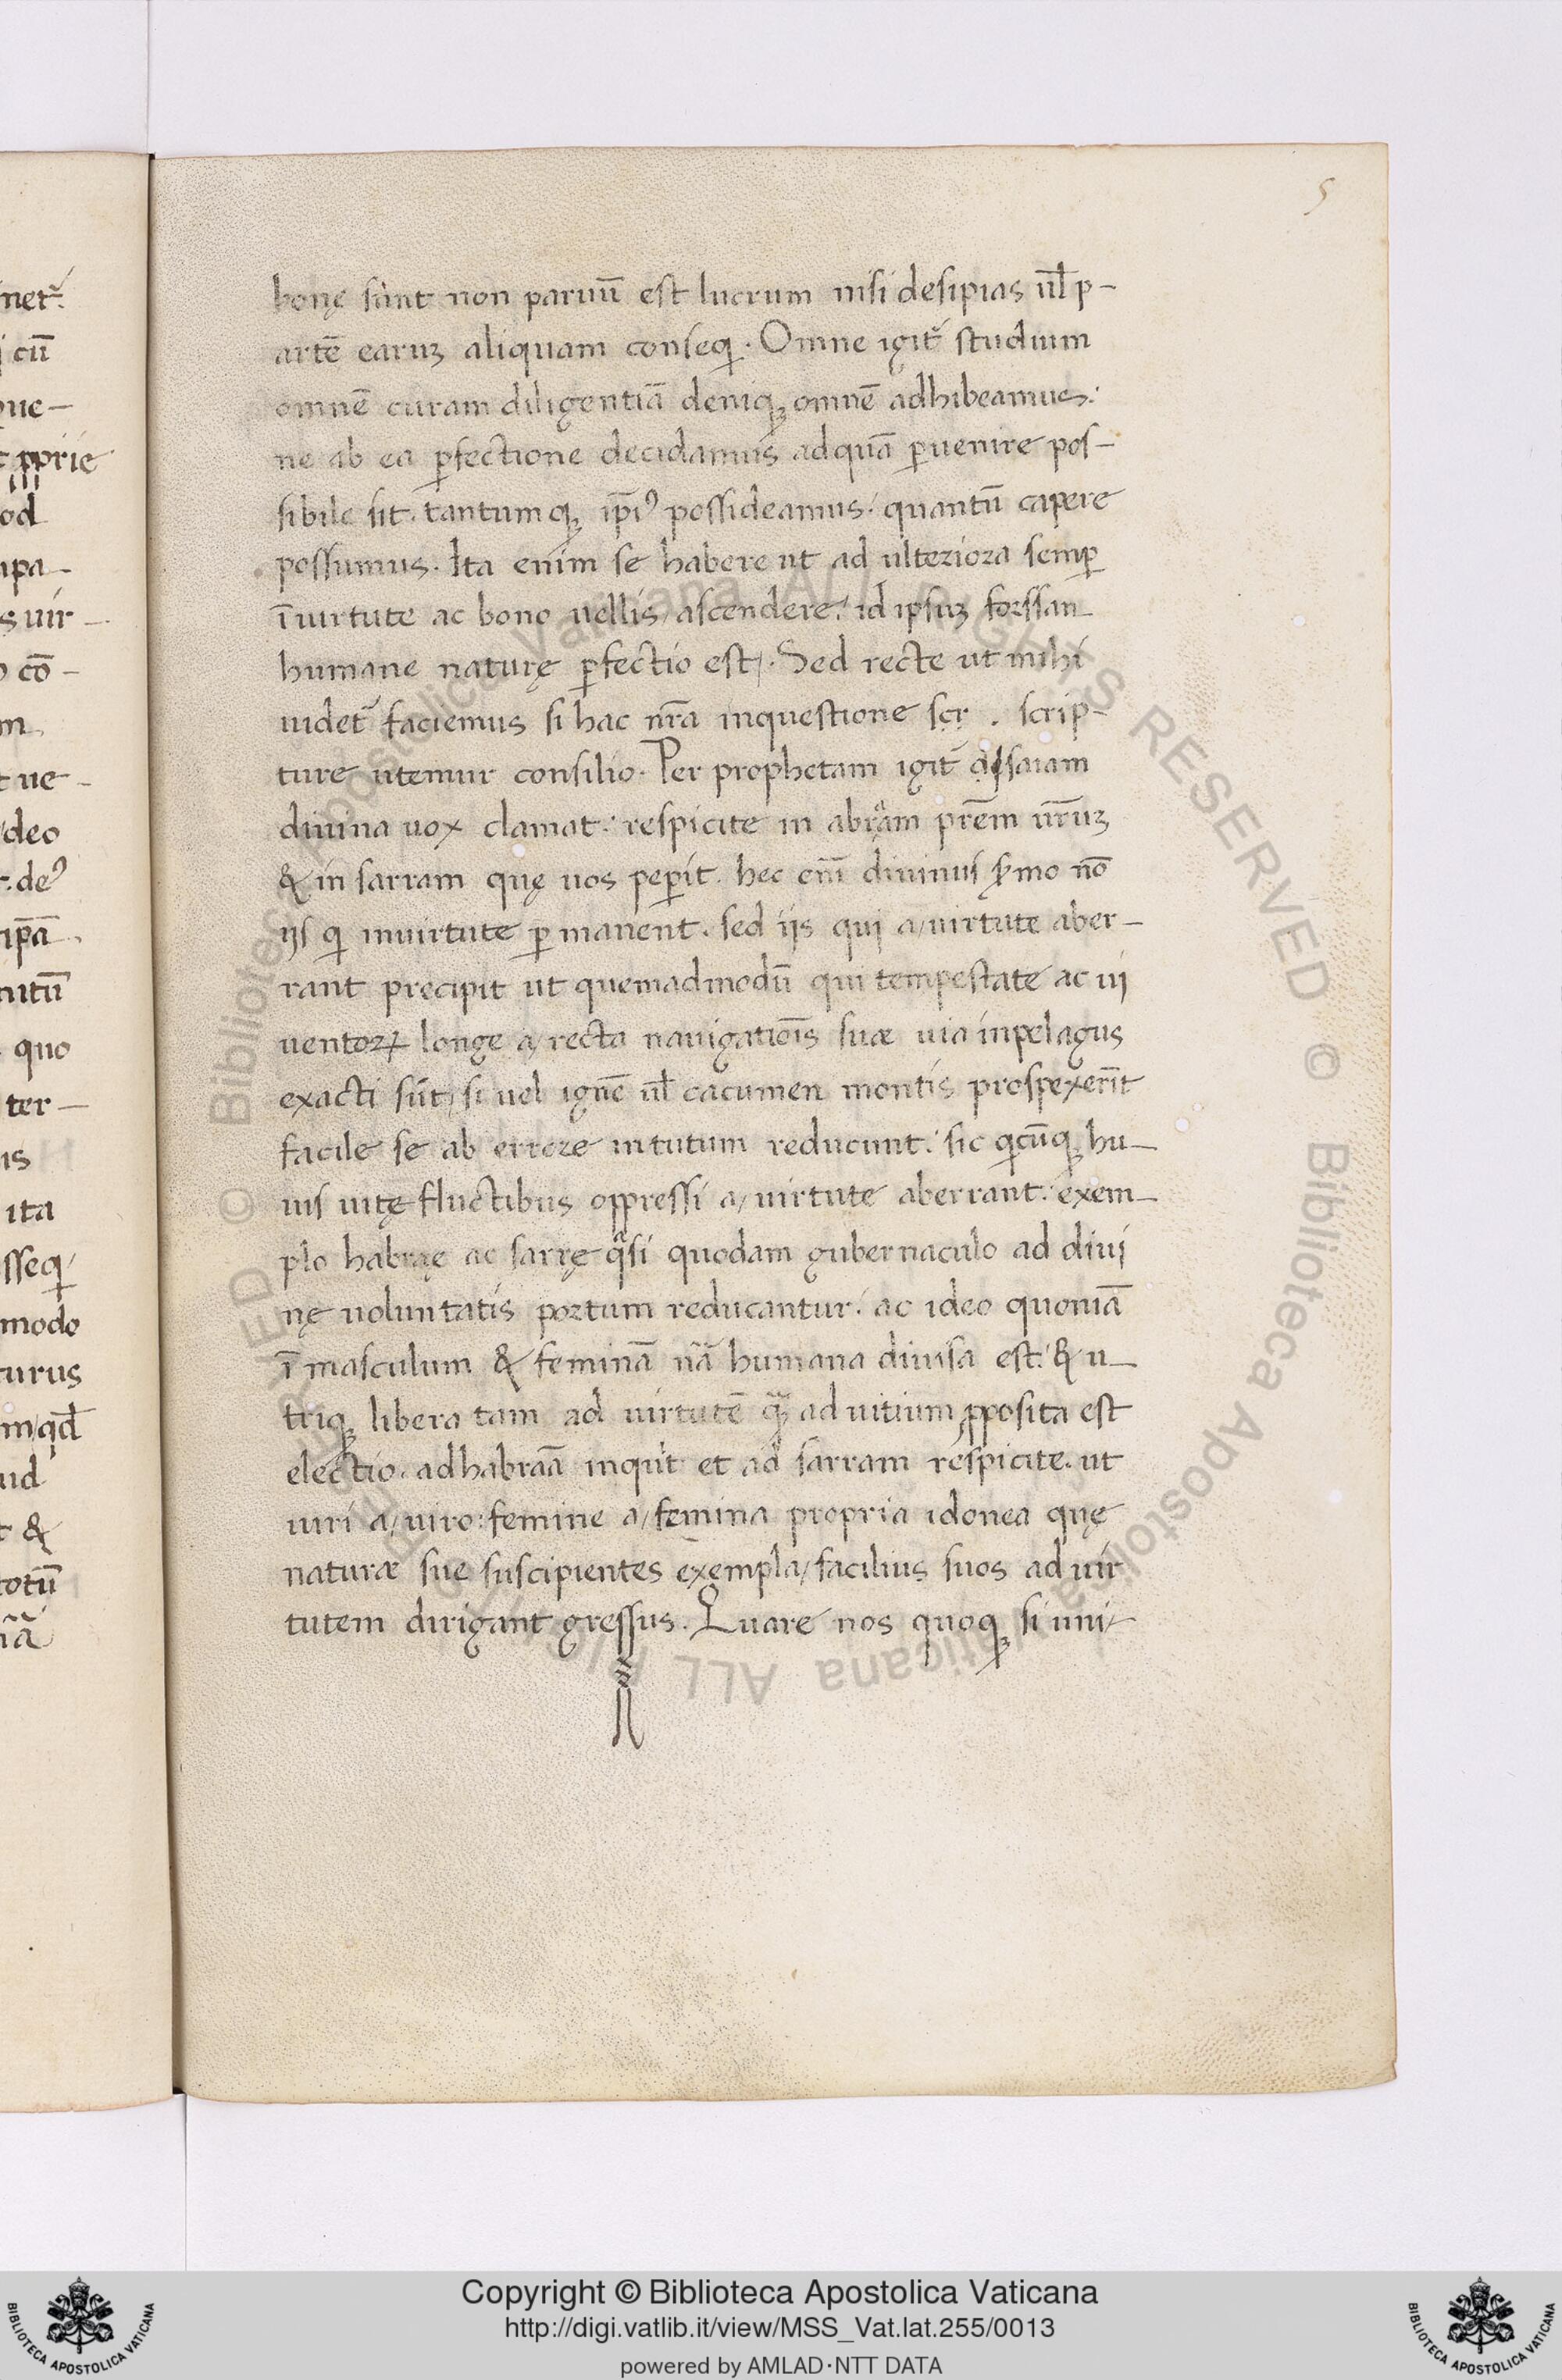 5
bonę sunt non paruū est lucrum nisi desipias ul̄ p-
artē earuꝫ aliquam conseqi. Omne igit᷑ studium
omnē curam diligentiā deniqꝫ omnē adhibeamus:
ne ab ea ꝑfectione decidamus ad quā ꝑuenire pos-
sibile sit. tantumqꝫ ip̄iꝰ possideamus: quantū capere
possumus. Ita enim se habere ut ad ulteriora semꝑ
ī uirtute ac bono uellis ascendere: id ipsuꝫ forssan
humane naturę ꝑfectio est. Sed recte ut mihi
uidet᷑ faciemus si hac nr̄a in questione scr . scrip-
ture utemur consilio. Per prophetam igit᷑ esaiam
diuina uox clamat: respicite in abraam pr̄em ur̄uꝫ
& in sarram quę uos peꝑit. hec eni᷑ diuinus ẜmo nō
ijs qi in uirtute ꝑmanent. sed ijs qui a/ uirtute aber-
rant precipit ut quemadmodū qui tempestate ac ui
uentoꝝ longe a/ recta nauigatiōis suæ uia in pelagus
exacti sūt/ si uel ignē ul̄ cacumen montis prospexerīt
facile se ab errore in tutum reducunt: sic qicūqꝫ hu-
ius uitę fluctibus oppressi a/ uirtute aberrant: exem-
plo habraę ac sarrę qᵃsi quodam gubernaculo ad diui
nę uoluntatis portum reducantur: ac ideo quoniā
ī masculum & feminā nā humana diuisa est: & u-
triqꝫ libera tam ad uirtutē qᵃꝫ ad uitium ꝓposita est
electio. ad habraā inquit et ad sarram respicite. ut
uiri a/ uiro: femine a/ femina propria idonea quę
naturæ sue suscipientes exempla/ facilius suos ad uir
tutem dirigant gressus. Quare nos quoqꝫ si uni-
Copyright © Biblioteca Apostolica Vaticana
http://digi.vatlib.it/view/MSS_Vat.lat.255/0013
powered by AMLAD·NTT DATA